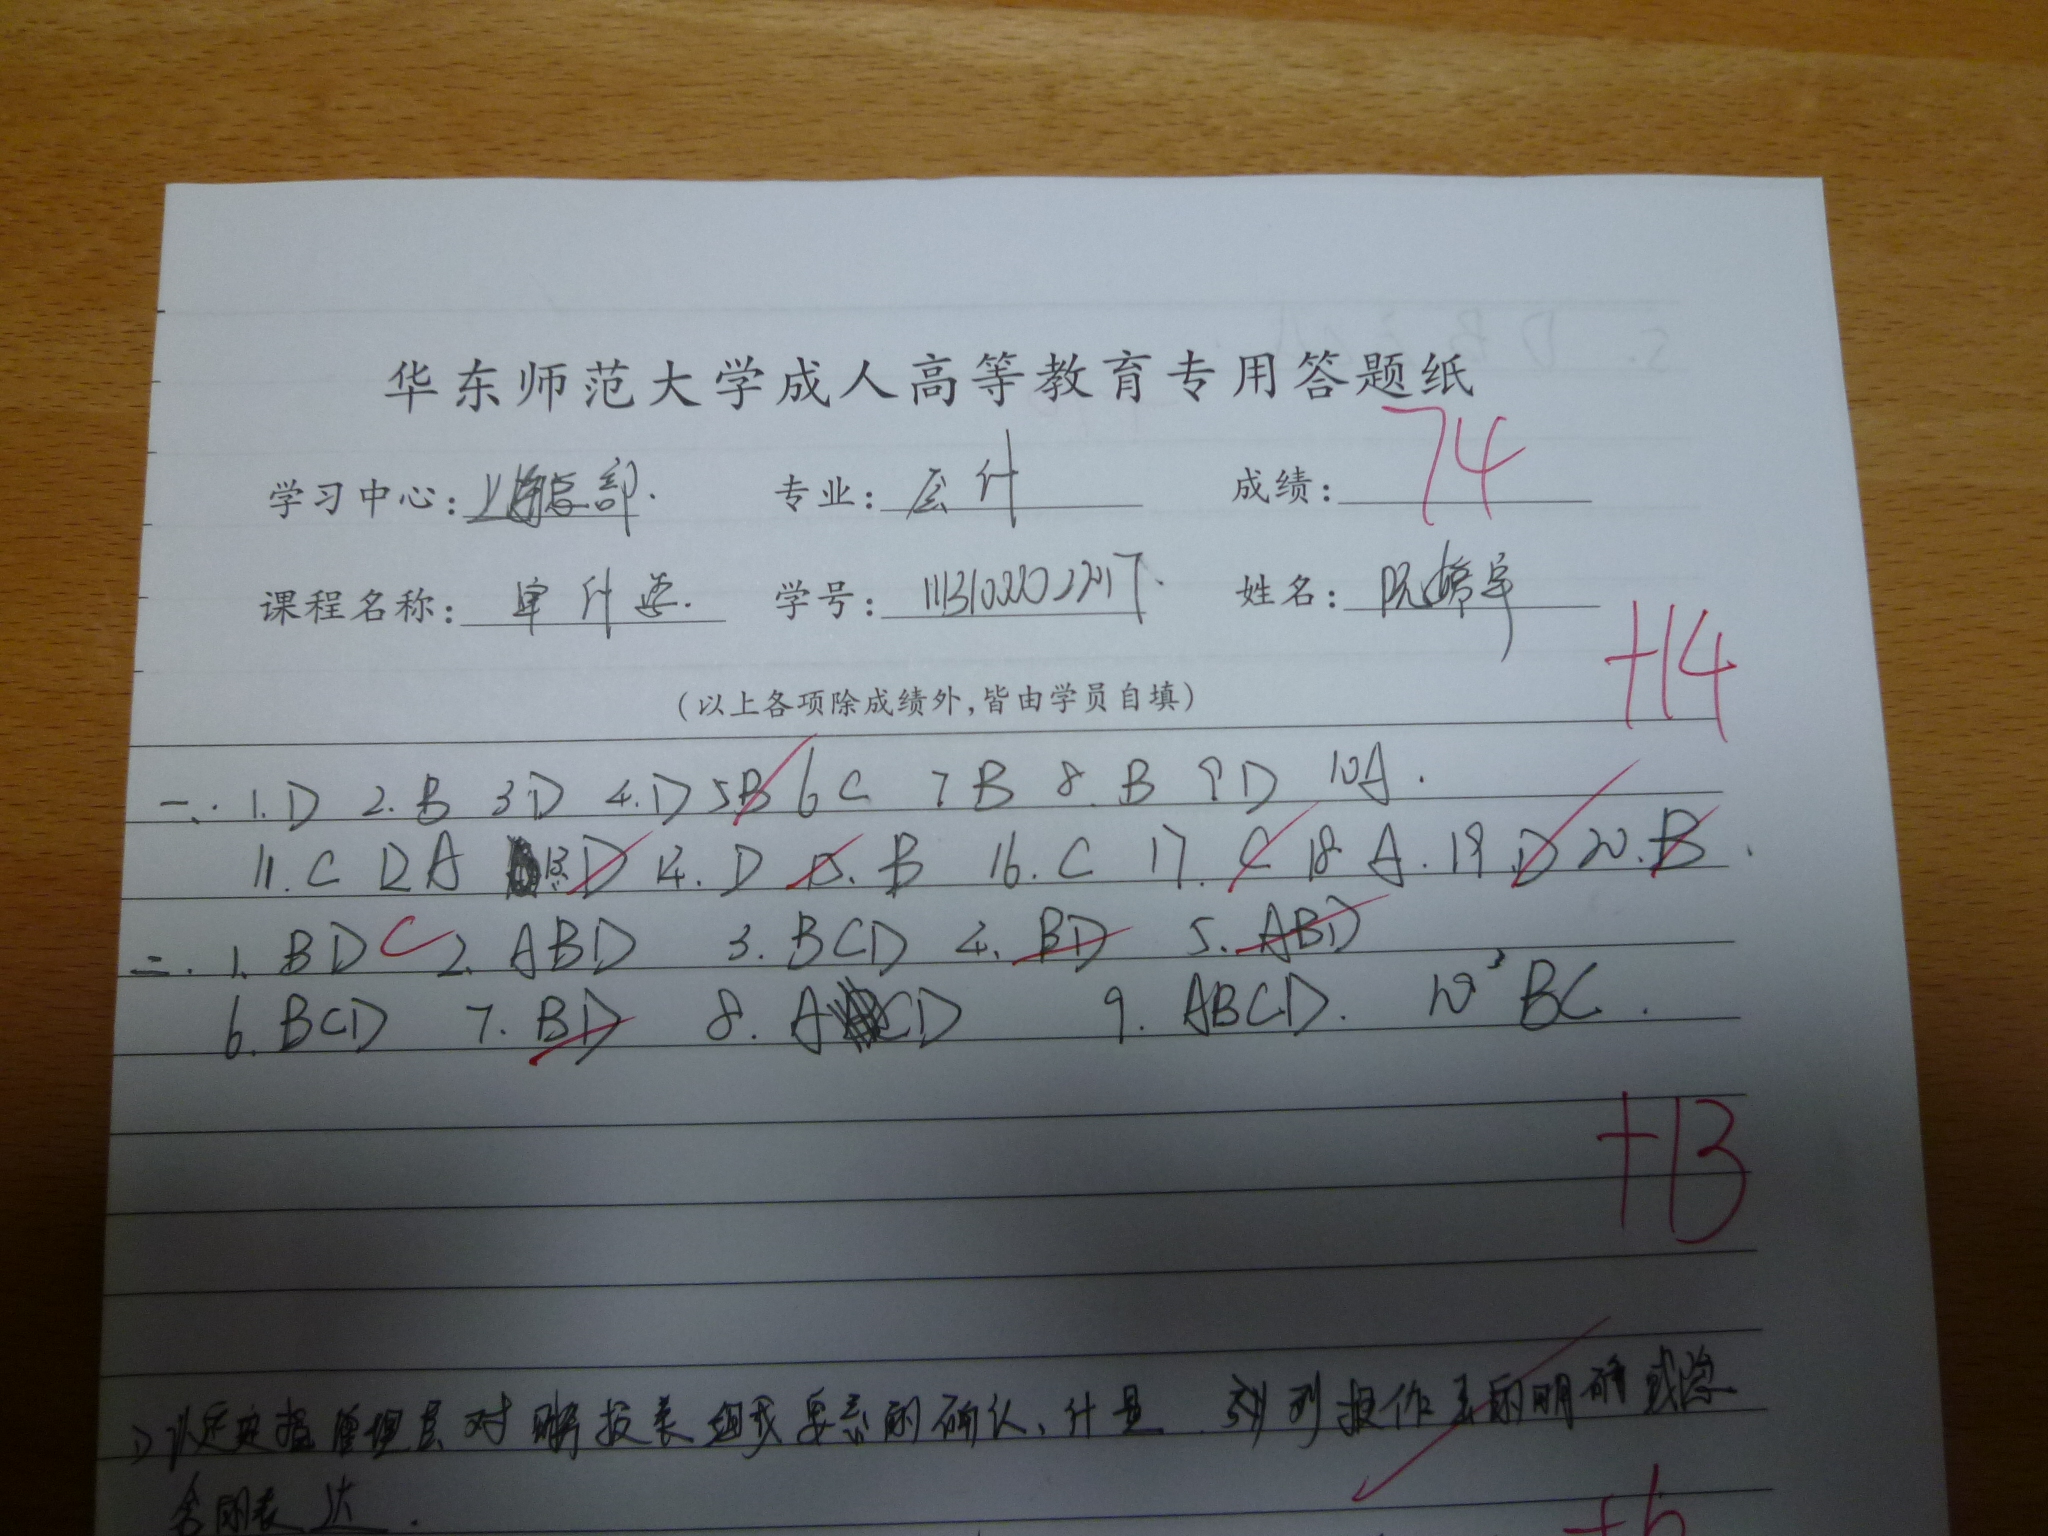 华东师范大学成人高等教育专用答题纸
学习中心: 上海总部. 专业: 会计 成绩: 74
课程名称: 审计学. 学号: 姓名: 阮婷宇
+14
(以上各项除成绩外,皆由学员自填)
一、1.D 2.B 3D 4.D 5B 6C 7B 8.B 9D 10A.
11.C 12A 13.D 14.D 15.B 16.C 17.C 18A. 19.D 20.B.
二.1.BDC 2.ABD 3.BCD 4.BD 5.ABD
6.BCD 7.BD 8.ACD 9.ABCD. 10、BC.
+13
1)认定是指管理层对财务报表组成要素的确认、计量、列报作出的明确或隐
含的表达.
+6